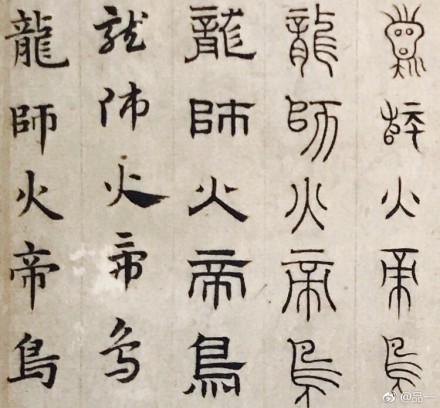 龍師火帝鳥
龍師火帝鳥
龍師火帝鳥
龍師火帝鳥
龍師火帝鳥
@品一